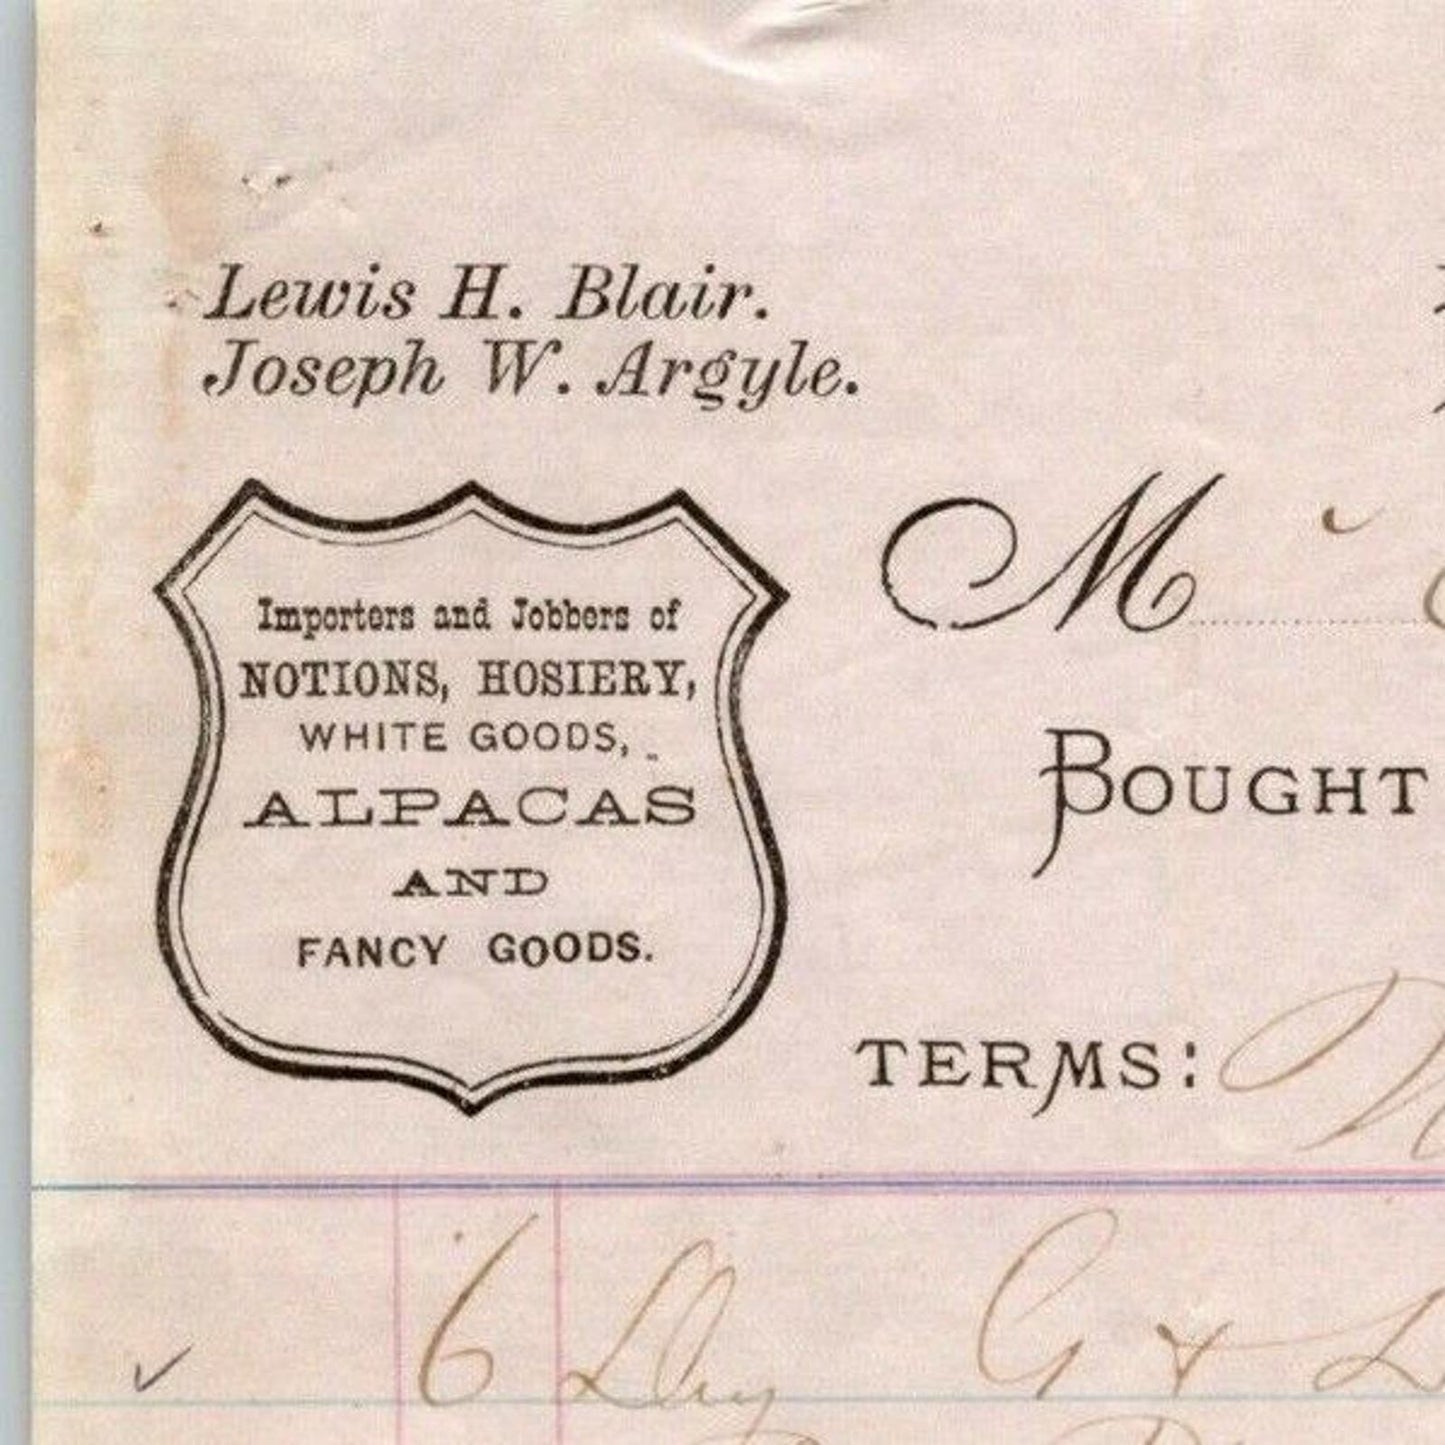 Lewis H. Blair.
Joseph W. Argyle.
Importers and Jobbers of
NOTIONS, HOSIERY,
WHITE GOODS,
ALPACAS
AND
FANCY GOODS.
M
BOUGHT
TERMS:
6